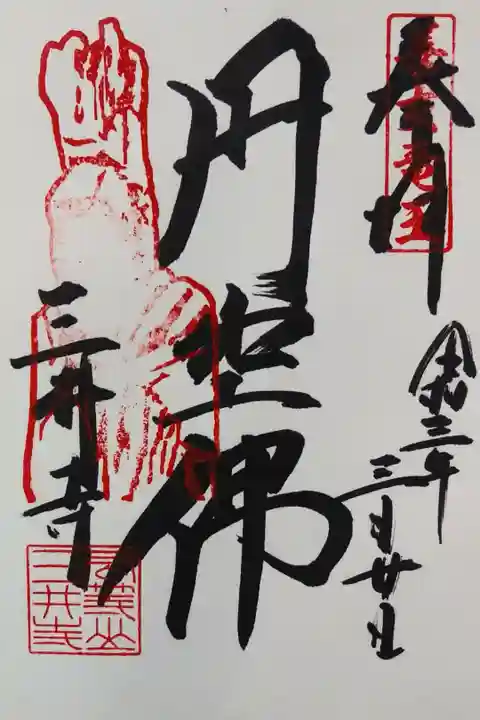 奉拝
令和三年
三月廿日
円空佛
三井寺
三井寺